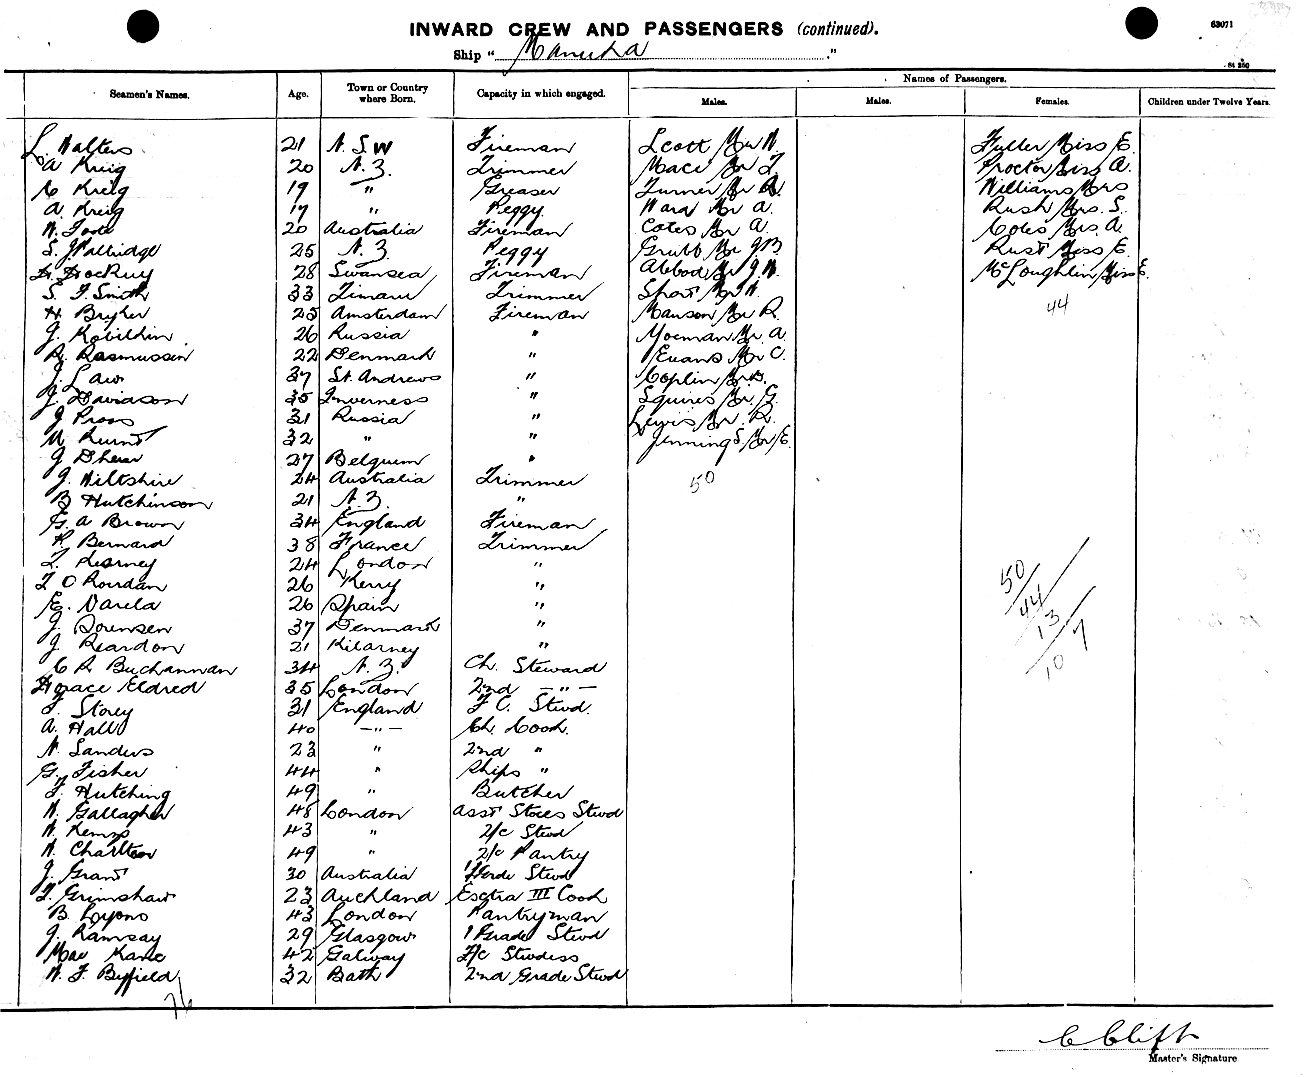 63071
INWARD CREW AND PASSENGERS (continued).
Ship "Manuka"
Names of Passengers.
Seamen's Names. Age. Town or Country where Born. Capacity in which engaged. Males. Males. Females. Children under Twelve Years.
L. Walters 21 N. S W Fireman Scott Mr W. Fuller Miss E.
A Kreig 20 N. Z. Trimmer Mace Mr T Proctor Miss A.
C Kreig 19 " Greaser Turner Mr Williams Mrs
A. Kreig 19 " Peggy Ward Mr A. Rush Mrs. S.
20 Australia Fireman Cotes Mr A. Cotes Mrs. A.
S. J Walbridge 25 N. Z Peggy Grubb Mr J B. Rust Miss E.
28 Swansea Fireman Mr J. W. McLoughlin Miss E.
S. F. Smith 33 Timaru Trimmer Mr W. 44
H 25 Amsterdam Fireman Manson Mr R.
J. 26 Russia " Yoeman Mr. A.
R. Rasmussen 22 Denmark " Evans Mr C.
J. Law 37 St. Andrews " Coplin Mr
J. Davidson 35 Inverness " Squires Mr G.
J 31 Russia " Lewis Mr. R.
32 " " Jennings Mr E.
J 27 Belguim "
J. Wiltshire 24 Australia Trimmer 50
B Hutchinson 21 N. Z. "
G. A Brown 34 England Fireman
Bernard 38 France Trimmer
T. Kearney 24 London "
T O Riordan 26 Kerry "
E. Varela 26 Spain "
J. Sorensen 37 Denmark "
J Reardon 21 Kilarney "
C R Buchannan 34 N. Z. Ch. Steward
Horace Eldred 35 London 2nd — " —
F. Storey 31 England F C. Stwd.
A. Hall 40 — " — Ch. Cook.
W. Sanders 23 " 2nd "
G. Fisher 44 " Ships "
Hutching 49 " Butcher
W. Gallagher 48 London Asst Stores Stwd
W. Kemp 43 " 2/c Stwd
W. Charlton 49 " 2/c Pantry
J. Grant 30 Australia 1 Stwd
T. Grimshaw 23 Auckland Esctra III Cook
B. Lyons 43 London Pantryman
J. Ramsay 29 Glasgow 1 Grade Stwd
Mac Kane 42 Galway Stwdess
W. F. Byfield 32 Bath 2nd Grade Stwd
50
44
13
7
10
C Clift
Master's Signature